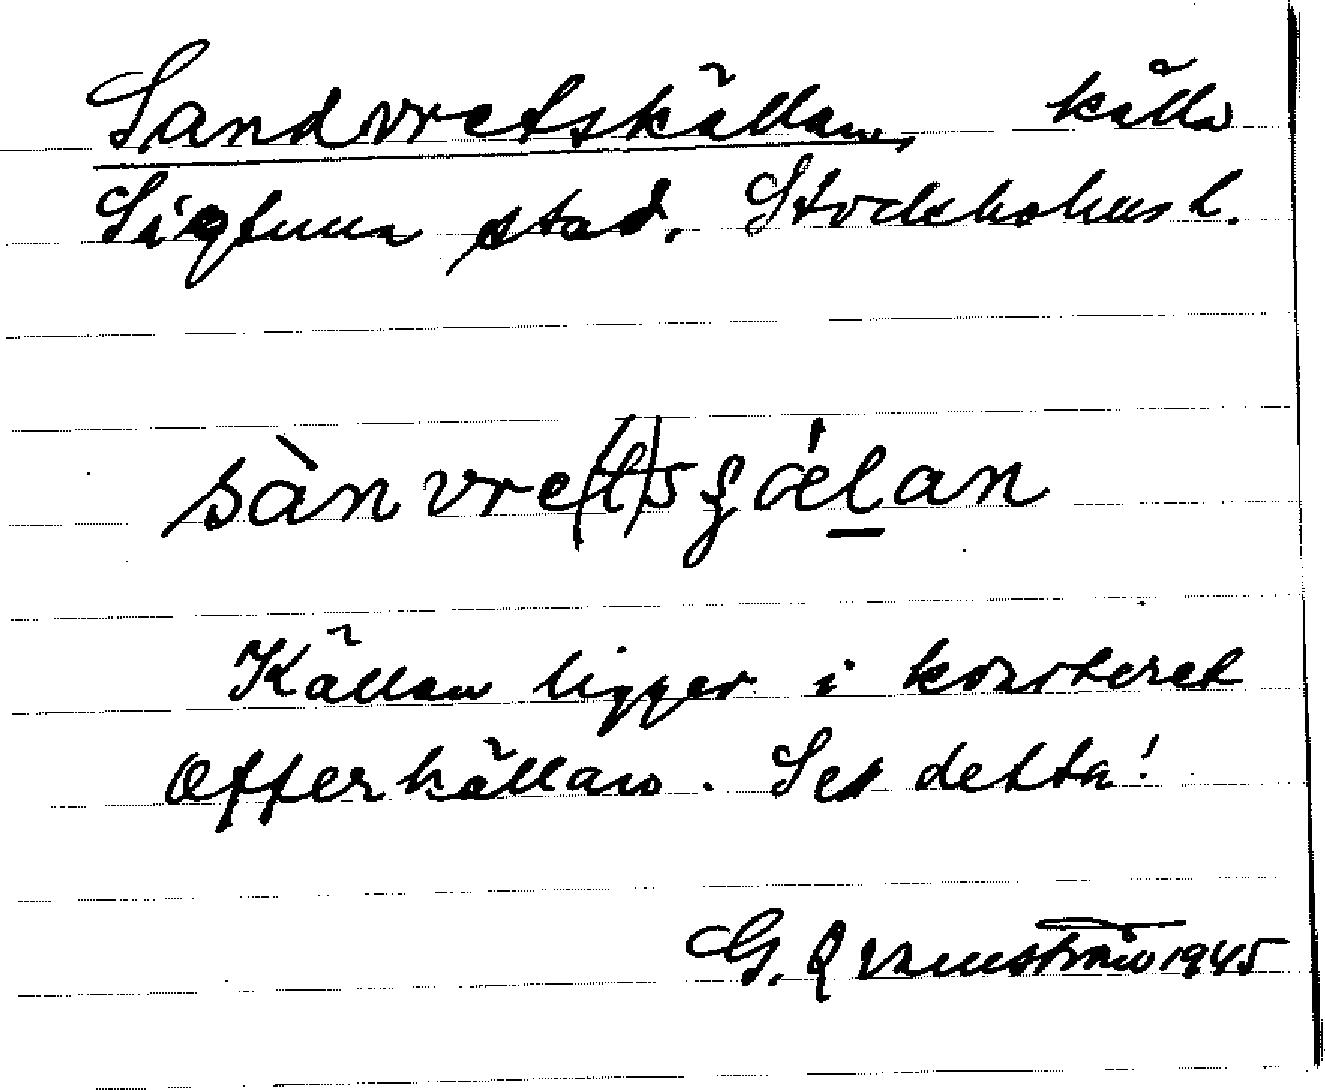 Sandvretskällan, källa
Sigtuna stad. Stockholms l.
sànvre(t)sʂǽḷan
Källan ligger i kvarteret
Offerkällan. Se detta!
G. Qvarnström 1945